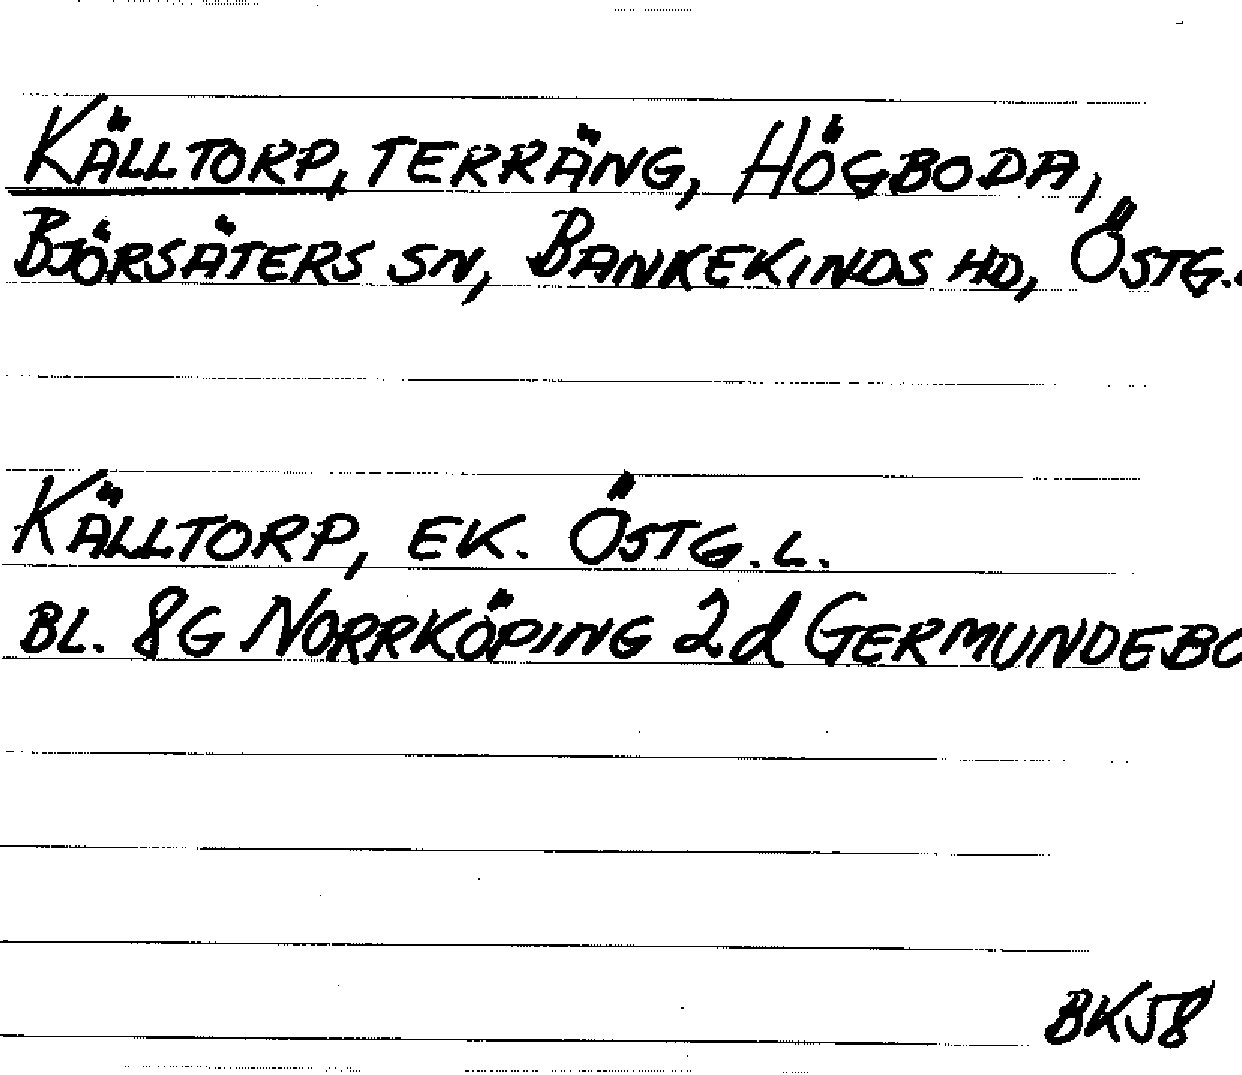 KÄLLTORP, TERRÄNG, HÖGBODA,
BJÖRSÄTERS SN, BANKEKINDS HD, ÖSTG.
KÄLLTORP, EK. ÖSTG. L.
BL. 8G NORRKÖPING 2d GERMUNDEBO
BK58